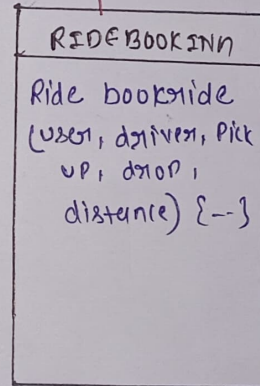 RIDEBOOKINn
Ride bookride
(user, driver, Pick
up, drop,
distance) {--}